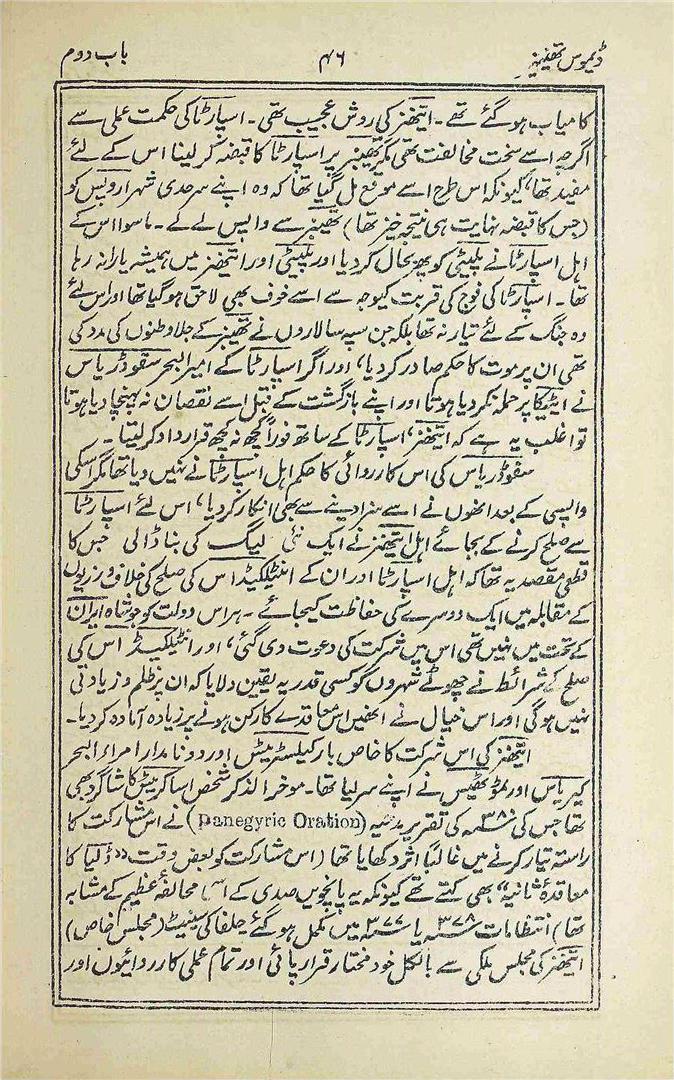 ڈیموس تھینیز ۴۶ باب دوم
کامیاب ہوگئے تھے۔ ایتھنز کی روش عجیب تھی۔ اسپارٹا کی حکمت عملی سے
اگرچہ اسے سخت مخالفت تھی مگر تھیبنر پر اسپارٹا کا قبضہ کرلینا اس کے لئے
مفید تھا، کیونکہ اس طرح اسے موقع مل گیا تھا کہ وہ اپنے سرحدی شہر اروپس کو
(جس کا قبضہ نہایت ہی نتیجہ خیز تھا) تھیبنر سے واپس لے لے۔ ماسوا اس کے
اہل اسپارٹا نے پلیٹی کو پھر بحال کردیا اور پلیٹی اور ایتھنز میں ہمیشہ یارانہ رہا
تھا۔ اسپارٹا کی فوج کی قربت کیوجہ سے اسے خوف بھی لاحق ہوگیا تھا اور اس لئے
وہ جنگ کے لئے تیار نہ تھا بلکہ جن سپہ سالاروں نے تھیبنر کے جلاوطنوں کی مدد کی
تھی ان پر موت کا حکم صادر کردیا، اور اگر اسپارٹا کے امیر البحر سفوڈریاس
نے ایٹیکا پر حملہ نکردیا ہوتا اور اپنے بازگشت کے قبل اسے نقصان نہ پہنچا دیا ہوتا
تو اغلب یہ ہے کہ ایتھنز، اسپارٹا کے ساتھ فوراً کچھ نہ کچھ قرارداد کرلیتا۔
سفوڈریاس کی اس کارروائی کا حکم اہل اسپارٹا نے نہیں دیا تھا مگر اسکی
واپسی کے بعد انھوں نے اسے سزا دینے سے بھی انکار کردیا، اس لئے اسپارٹا
سے صلح کرنے کے بجائے اہل ایتھنز نے ایک نئی لیگ کی بنا ڈالی جس کا
قطعی مقصد یہ تھا کہ اہل اسپارٹا اور ان کے انٹیلکیڈاس کی صلح کی خلاف ورزیوں
کے مقابلہ میں ایک دوسرے کی حفاظت کیجائے۔ ہر اس دولت کو جو شاہ ایران
کے تحت میں نہیں تھی اس میں شرکت کی دعوت دی گئی، اور انٹیلکیڈاس کی
صلح کے شرائط نے چھوٹے شہروں کو کسی قدر یہ یقین دلایا کہ ان پر ظلم و زیادتی
نہیں ہوگی اور اس خیال نے انھیں اس معاقدے کا رکن ہونے پر زیادہ آمادہ کردیا۔
ایتھنز کی اس شرکت کا خاص بار کیلسٹریٹس اور دو نامدار امراء البحر
کیبریاس اور ٹموتھیس نے اپنے سر لیا تھا۔ موخر الذکر شخص اساکریٹس کا شاگرد بھی
تھا جس کی ۳۸۰ء کی تقریر مدحیہ (Panegyric Oration) نے اس مشارکت کا
راستہ تیار کرنے میں غالباً اثر دکھایا تھا (اس مشارکت کو بعض وقت "ڈیلیا کا
معاقدۂ ثانیہ" بھی کہتے تھے کیونکہ یہ پانچویں صدی کے اسی محالفۂ عظیم کے مشابہ
تھا) انتظامات ۳۷۸ء یا ۳۷۷ء میں مکمل ہوگئے حلفا کی سینیٹ (مجلس خاص)
ایتھنز کی مجلس ملکی سے بالکل خود مختار قرار پائی اور تمام عملی کارروائیوں اور